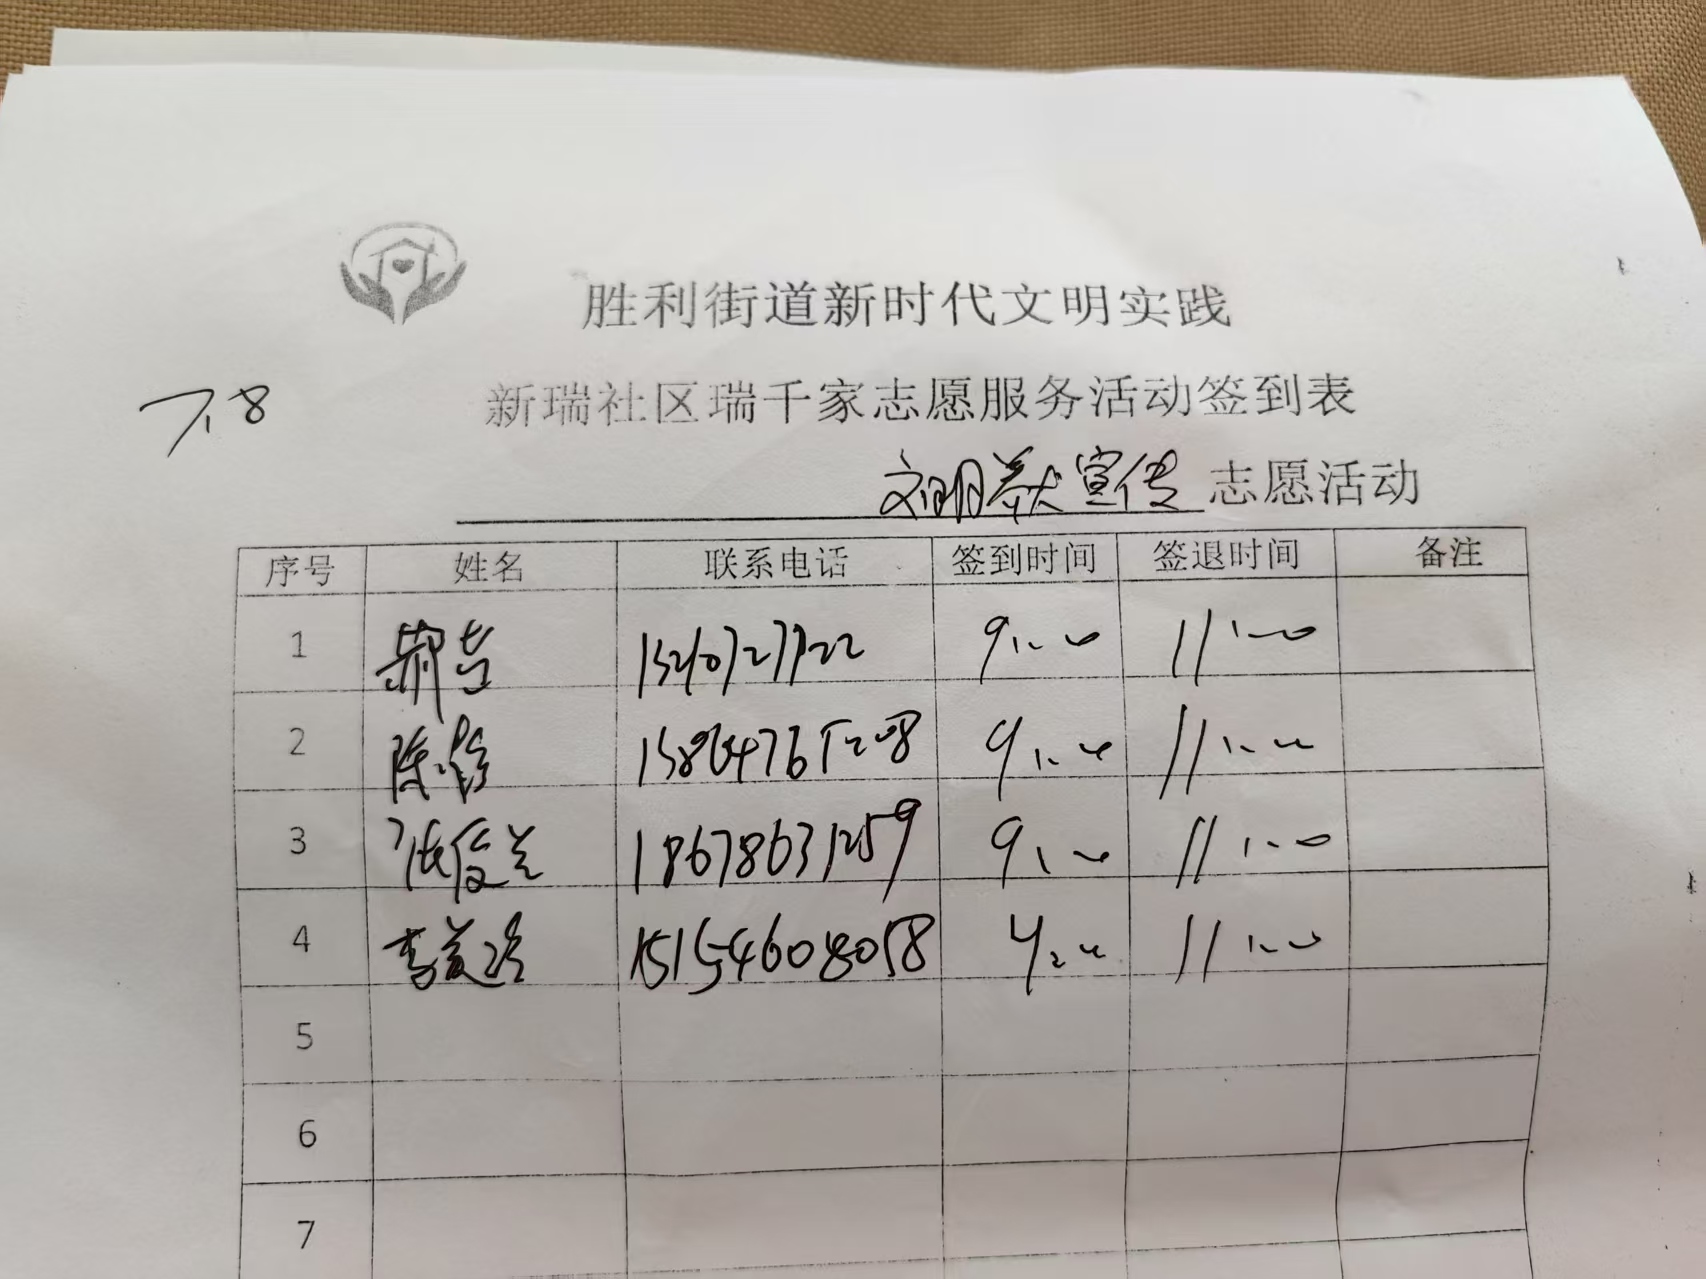 胜利街道新时代文明实践
7.8
新瑞社区瑞千家志愿服务活动签到表
文明养犬宣传 志愿活动
序号 姓名 联系电话 签到时间 签退时间 备注
1 9:00 11:00
2 陈 9:00 11:00
3 张俊兰 18678631259 9:00 11:00
4 李 15154608058 9:00 11:00
5
6
7